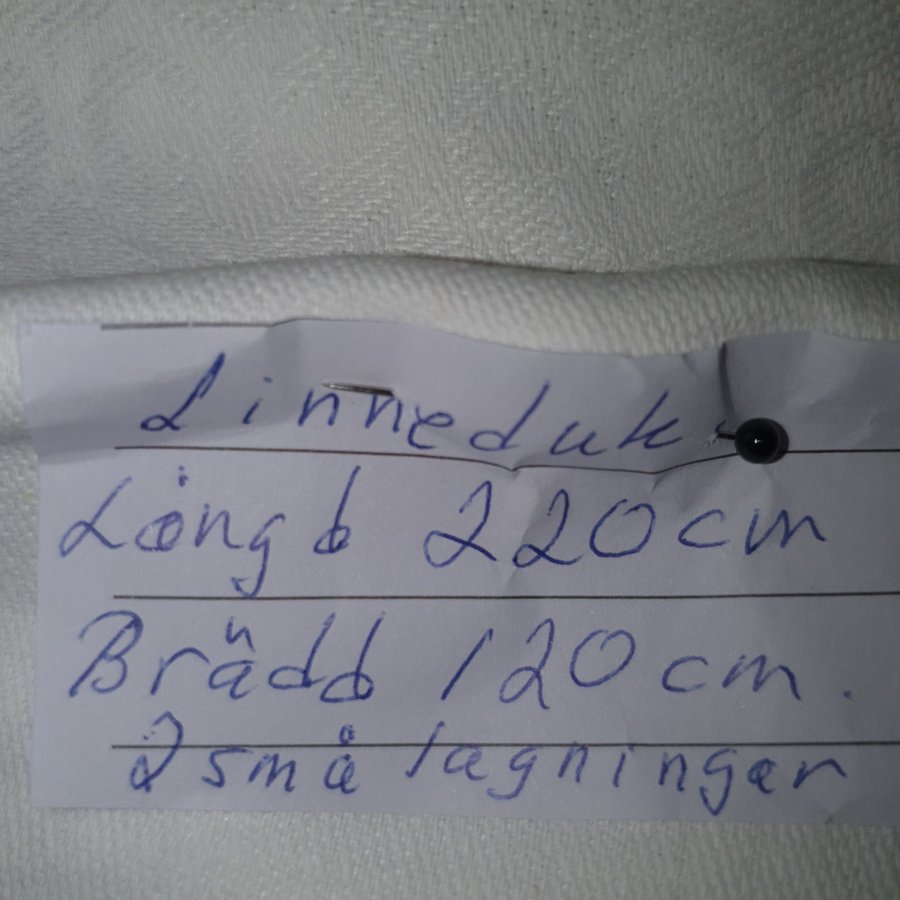 Linneduk
Längd 220cm
Brädd 120cm.
2 små lagningar